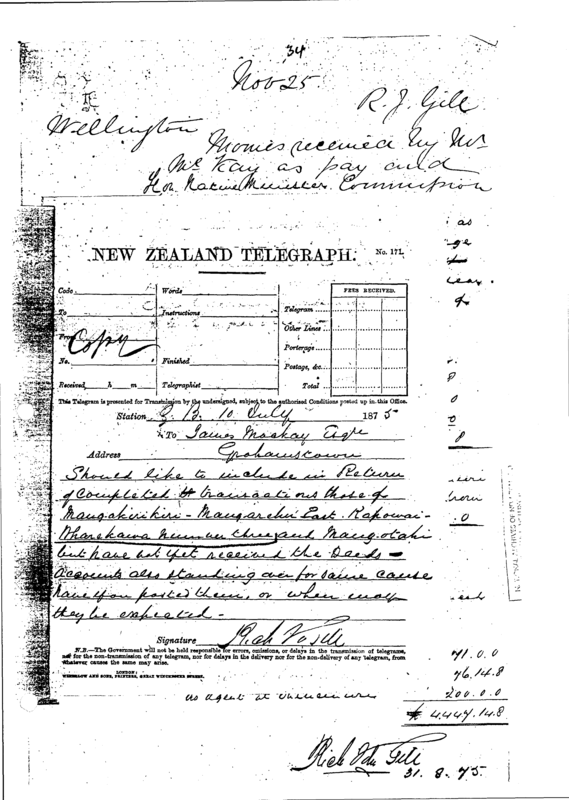 34
Nov 25.
R. J. Gill
Wellington
Monies received by Mr
McKay as pay and
Hon. Native Minister. Commission
as
NEW ZEALAND TELEGRAPH. No. 171.
Code
Words
FEES RECEIVED.
To
Instructions
Telegram
Other Lines
From
Copy
Porterage
No.
Finished
Postage, &c.
Received, h m
Telegraphist
Total
This Telegram is presented for Transmission by the undersigned, subject to the authorised Conditions posted up in this Office.
Station G. B. 10 July 1875
To James Mackay Esqre
Address Grahamstown
Should like to include in Return
of completed transactions those of
East. Kapowai-
Wharekawa number three and
but have not yet received the Deeds-
Accounts also standing over for same cause
have you posted them, or when may
they be expected-
Signature Rich
N.B.—The Government will not be held responsible for errors, omissions, or delays in the transmission of telegrams,
nor for the non-transmission of any telegram, nor for delays in the delivery nor for the non-delivery of any telegram, from
whatever causes the same may arise.
LONDON:
WATERLOW AND SONS, PRINTERS, GREAT WINCHESTER STREET.
71.0.0
76.14.8
as agent at
200.0.0
4,447.14.8
Rich Jn Gill
31.8.75.